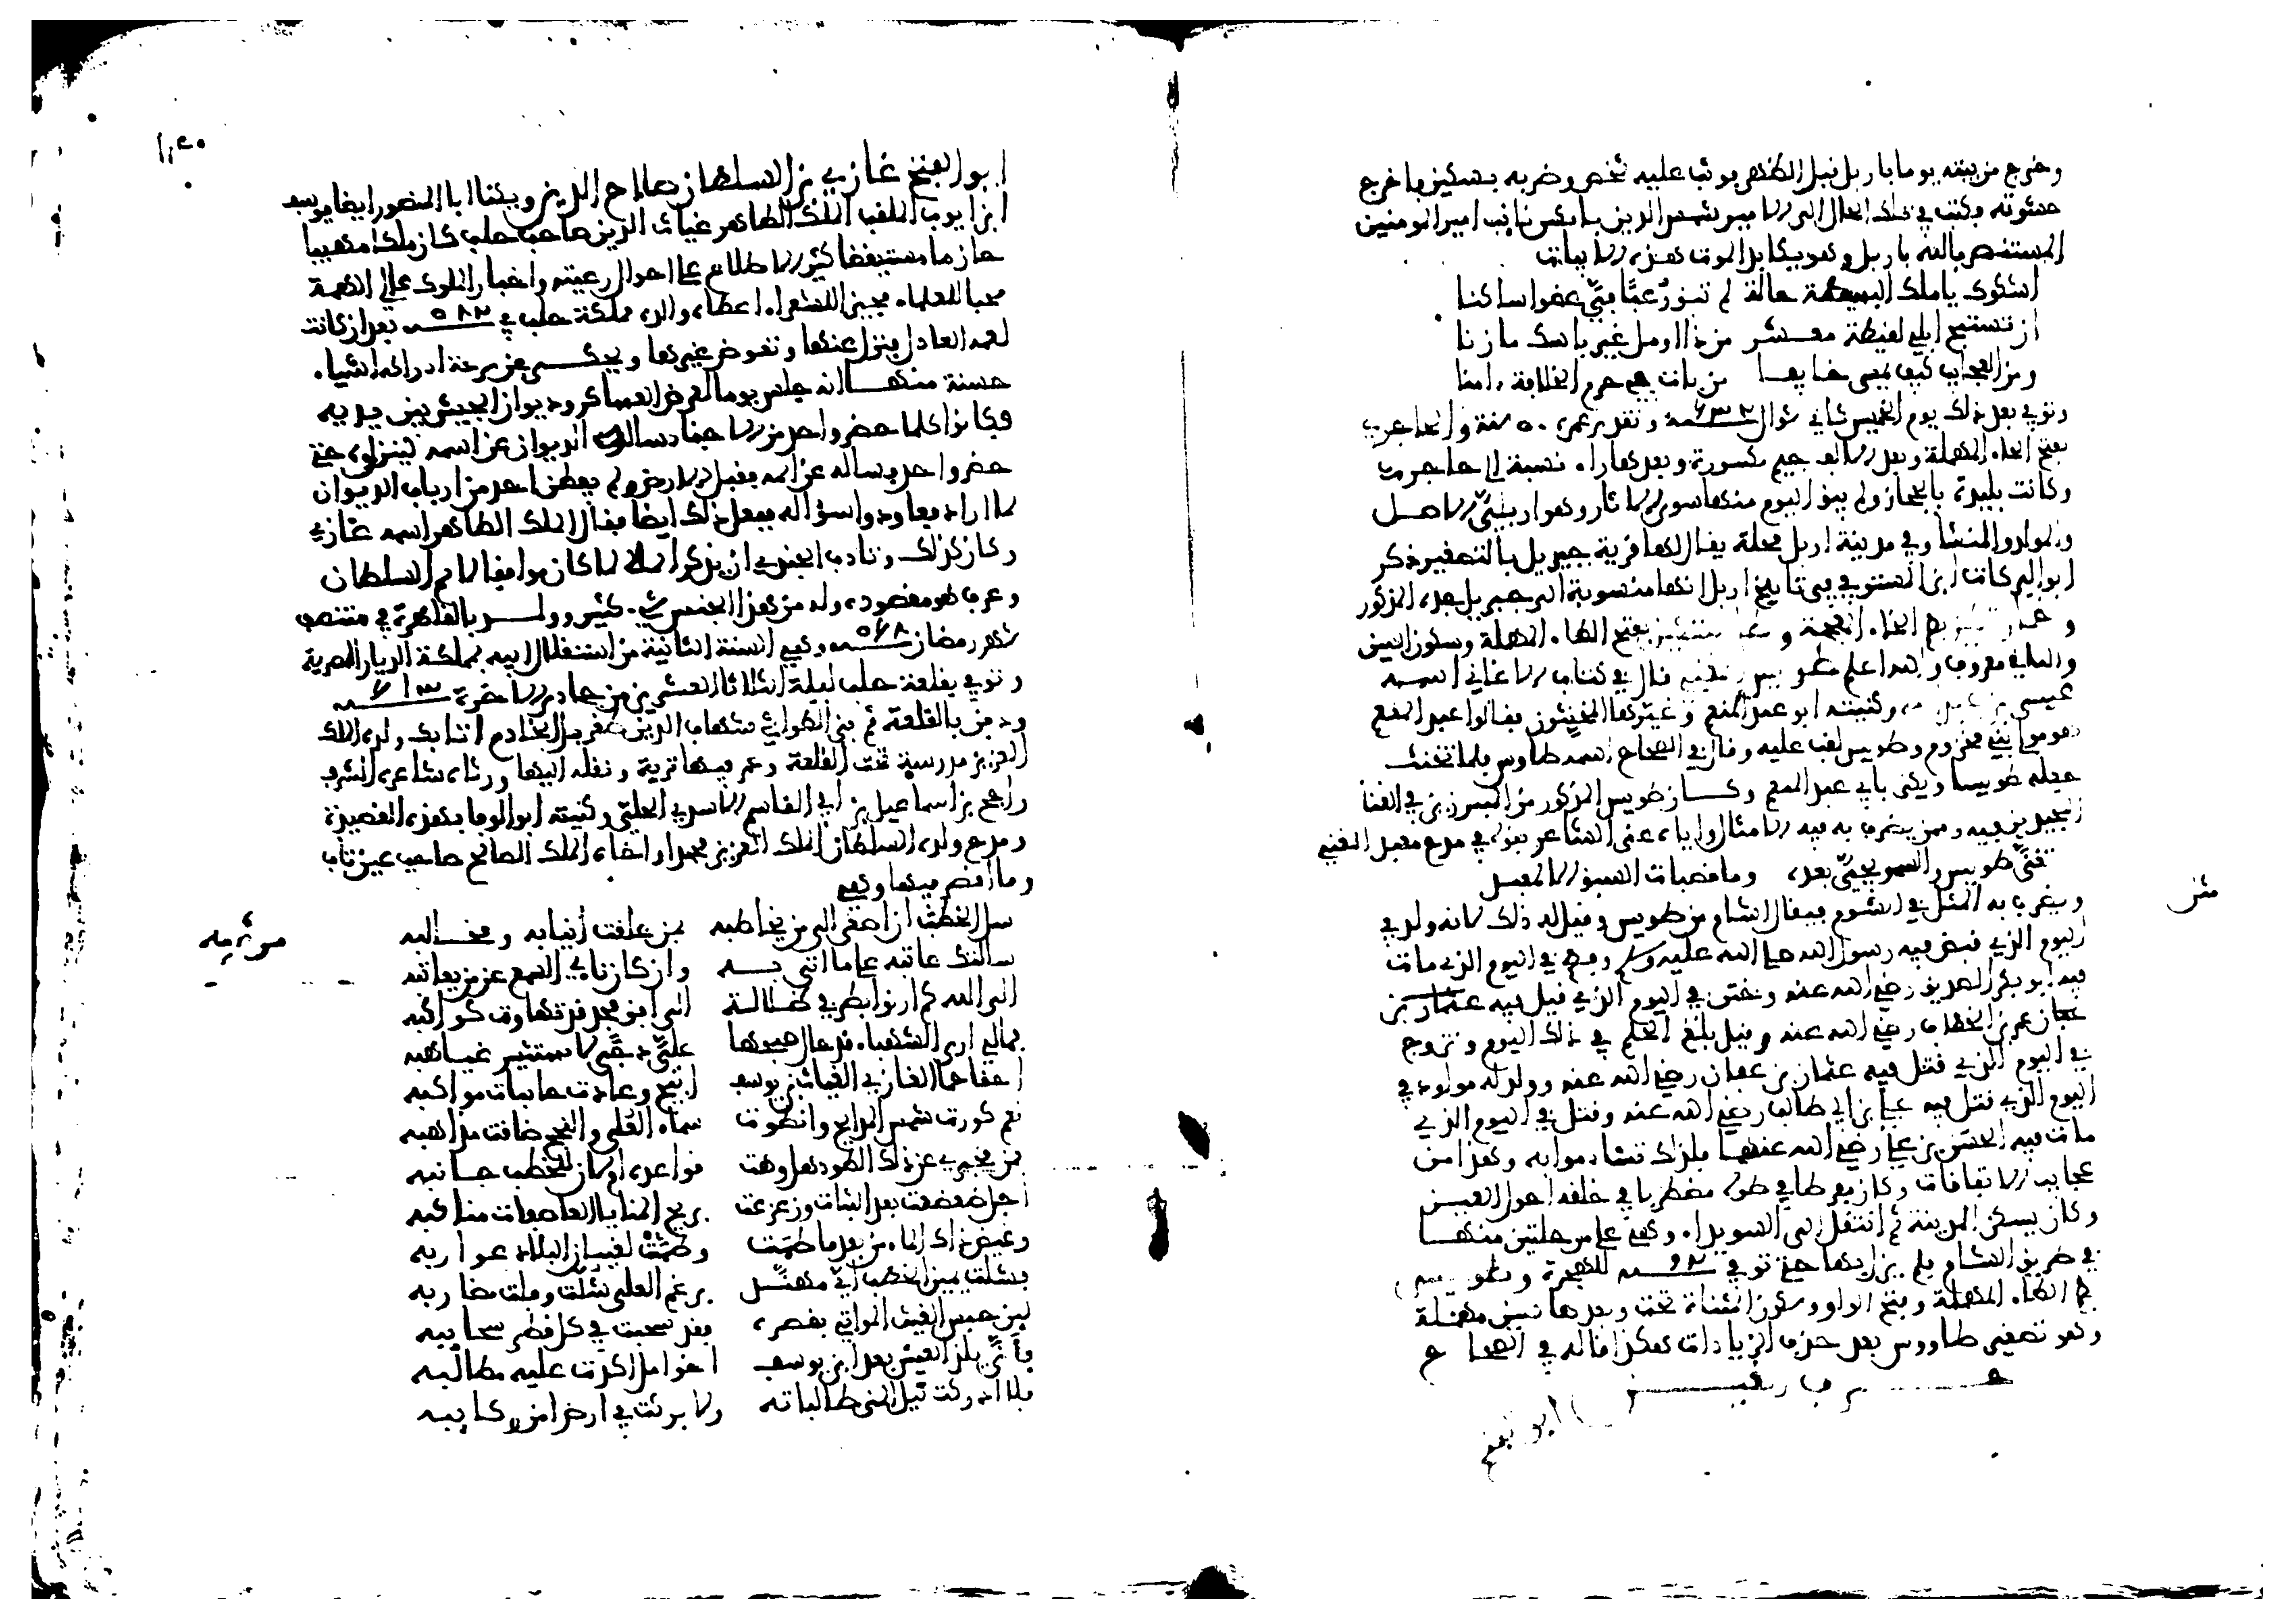 وخرج من بيته يوما باربل قبل الظهر فوثب عليه شخص وضربه بسكين فاخرج
حشوته وكتب في تلك الحال الى الامير شمس الدين باتكين نائب امير المومنين
المستنصر بالله باربل وهو يكابد الموت هذه الابيات
اشكوك يا ملك البسيطة حالة لم تبق رعبا في عضوا ساكنا
ان تستبح ابلي لقيطة معشر من ذا اومل غير باسك مازنا
ومن العجايب كيف يمسي خايفا من بات في حرم الخلافة امنا
وتوفي بعد ذلك يوم الخميس ثاني شوال ٦٣٢ وتقدير عمره ٥٠ سنة والحاجري
بفتح الحاء المهملة وبعد الالف جيم مكسورة وبعدها راء نسبة الى حاجر
وكانت بليدة بالحجاز ولم يبق اليوم منها سوى الاثار وهو اربلي الاصل
والمولد والمنشا وفي مدينة اربل محلة يقال لها قرية جبريل بالتصغير ذكر
ابو البركات ابن المستوفي في تاريخ اربل انها منسوبة الى جبريل جده المذكور
الخاء المعجمة بفتح الطاء المهملة وسكون السين
قال في كتاب الاغاني اسمه
عيسى بن عبد الله وكنيته ابو عبد المنعم وغيرها المخنثون فقالوا عبد النعيم
هو مولى بني مخزوم وطويس لقب عليه وقال في الصحاح اسمه طاوس فلما تخنث
جعله طويسا ويكنى بابي عبد النعيم وكان طويس المذكور من المبرزين في الغنا
المجيدين فيه وممن يضرب به فيه الامثال واياه عنى الشاعر بقوله في مدح معبد المغني
تغنى طويس والسريجي بعده وما قصبات السبق الا لمعبد
ويضرب به المثل في الشوم فيقال اشام من طويس وقيل له ذلك لانه ولد في
اليوم الذي قبض فيه رسول الله صلى الله عليه وسلم وفطم في اليوم الذي مات
فيه ابو بكر الصديق رضي الله عنه وختن في اليوم الذي قتل فيه
عمر بن الخطاب رضي الله عنه وقيل بلغ الحلم في ذلك اليوم وتزوج
في اليوم الذي قتل فيه عثمان بن عفان رضي الله عنه وولد له مولود في
اليوم الذي قتل فيه علي بن ابي طالب رضي الله عنه وقتل في اليوم الذي
مات فيه الحسن بن علي رضي الله عنهما فلذلك تشاءموا به وهذا من
عجايب الاتفاقات وكان مفرطا في طوله مضطربا في خلقه احول العين
وكان يسكن المدينة ثم انتقل الى السويداء وهي على مرحلتين منها
في طريق الشام فلم يزل بها حتى توفي ٩٢ للهجرة وطويس
بضم الطاء المهملة وفتح الواو وسكون المثناة تحت وبعدها سين مهملة
وهو تصغير طاووس بعد حذف الزيادات هكذا قاله في الصحاح
حرف الغين
ابو الفتح
ابو الفتح غازي بن السلطان صلاح الدين ويكنا ابا المنصور ايضا يوسف
ابن ايوب الملقب الملك الظاهر غياث الدين صاحب حلب كان ملكا مهيبا
حازما متيقظا كثير الاطلاع على احوال رعيته واخبار الملوك عالي الهمة
محبا للعلماء مجيزا للشعراء اعطاه والده مملكة حلب في ٥٨٢ بعد ان كانت
لعمه العادل فنزل عنها وتعوض غيرها ويحكى عن سرعة ادراكه اشياء
حسنة منها انه جلس يوما لعرض العساكر وديوان الجيش بين يديه
فكانوا كلما حضر واحد من الاجناد ساله الديوان عن اسمه لينزلوه حتى
حضر واحد فساله عن اسمه فقبل الارض ولم يفطن احد من ارباب الديوان
لما اراد فعاودوا سؤاله ففعل ذلك ايضا فقال الملك الظاهر اسمه غازي
وكان كذلك وتادب الجندي ان يذكر اسمه لما كان موافقا لاسم السلطان
وعرف هو مقصوده وله من هذا الجنس شيء كثير وولد بالقاهرة في منتصف
شهر رمضان ٥٦٨ وهي السنة الثانية من استقلال ابيه بمملكة الديار المصرية
وتوفي بقلعة حلب ليلة الثلاثا العشرين من جمادى الاخرة ٦١٣
ودفن بالقلعة ثم بنى الطواشي شهاب الدين طغريل الخادم اتابك ولده الملك
العزيز مدرسة تحت القلعة وعمر فيها تربة ونقله اليها ورثاه شاعره الشرف
راجح بن اسماعيل بن ابي القاسم الاسدي الحلي وكنيته ابو الوفا بهذه القصيدة
ومدح ولده السلطان الملك العزيز محمدا واخاه الملك الصالح صاحب عين تاب
وما اقصر فيها وهي
سل الخطب ان اصغى الى من يخاطبه بمن علقت أنيابه ومخالبه
نشدتك عاتبه على ما اتى به وان كان نابي السمع عن من يعاتبه
الى الله كم ارنوا بطرفي ضلالة الى افق مجد قد تهاوت كواكبه
فمالي ارى الشهباء قد حال صبحها علي دجى لا تستنير غياهبه
احقا حما الغازي الغياث بن يوسف ابيح وعادت خايبات مواكبه
نعم كورت شمس المدايح وانطوت سماء العلى والنجح ضاقت مذاهبه
فمن مخبري عن ذلك الطود هل وهت قواعده ام لان للخطب جانبه
اجل ضعضعت بعد الثبات وزعزعت بريح المنايا العاصفات مناكبه
وغيض ذاك الماء من بعد ما طمت وطمت لغيظان البلاد غواربه
فشلت يمين الخطب اي مهند برغم العلى شلت وفلت مضاربه
لين حبس الغيث المواتي بقصره فقد سحبت في كل قطر سحايبه
فأنى يلذ العيش بعد ابن يوسف اخو امل اكدت عليه مطالبه
فلا ادركت نيل المنى طالباته ولا بركت في ارض امن ركايبه
مرثيه